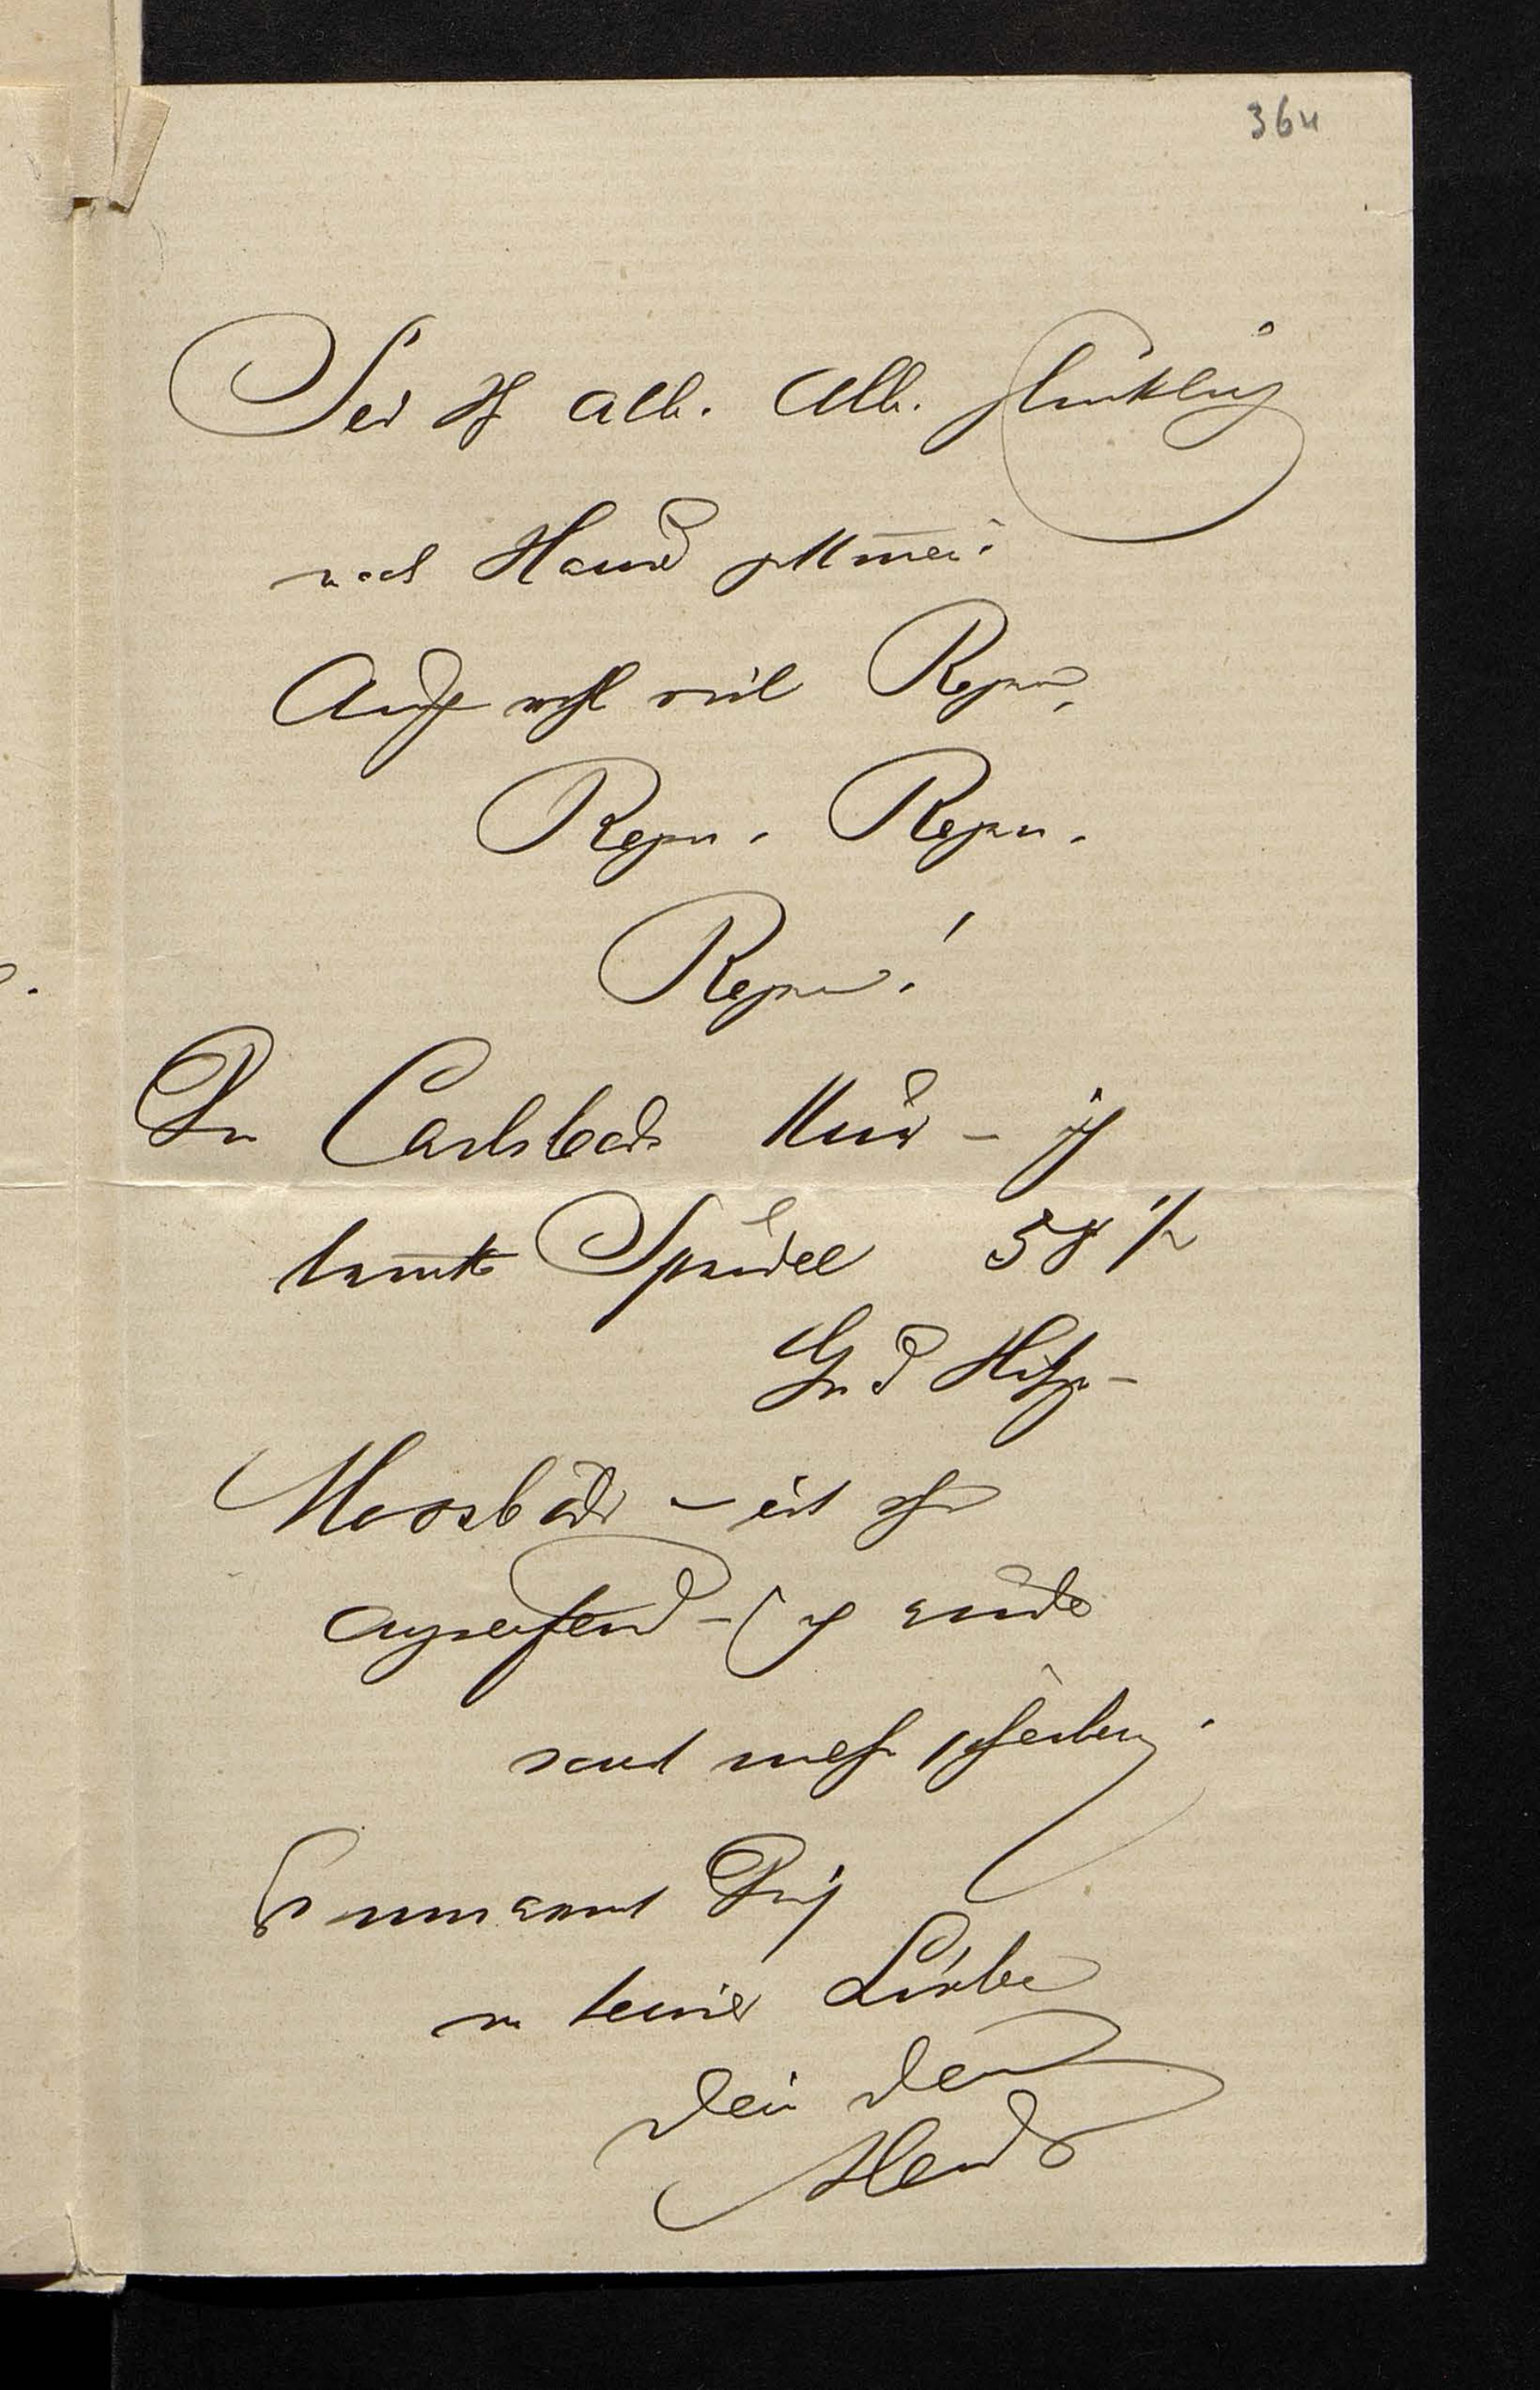 364
Seid Ihr alle. Alle. glücklich
nach Hause gekommen?
Auch wohl viel Regen,
Regen. Regen.
Regen!
Die Carlsbader Kur – ich
trinke Sprudel 58 1/2
Gr d Hitze –
Moorbäder – ist sehr
angreifend – ich
mehr schreiben.
Es umarmt Dich
in Liebe
Dein